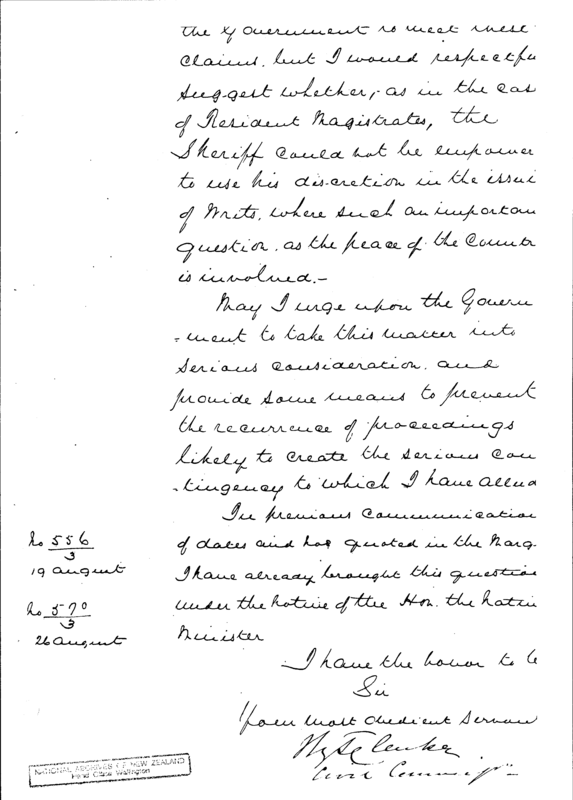 the Government to meet these
claims, but I would respectfu
suggest whether, as in the cas
of Resident Magistrates, the
Sheriff could not be empower
to use his discretion in the issui
of Writs, where such an importan
question, as the peace of the Countr
is involved.-
May I urge upon the Govern
-ment to take this matter into
serious consideration and
provide some means to prevent
the recurrence of proceedings
likely to create the serious con
-tingency to which I have allud
In previous communication
No 556/3
of dates and Nos quoted in the Marg.
19 August
I have already brought this question
No 570/3
under the notice of the Hon. the Nativ
26 August
Minister
I have the honor to b
Sir
Your most obedient Servan
H. T. Clarke
Civil Commissr
NATIONAL ARCHIVES OF NEW ZEALAND
Head Office Wellington